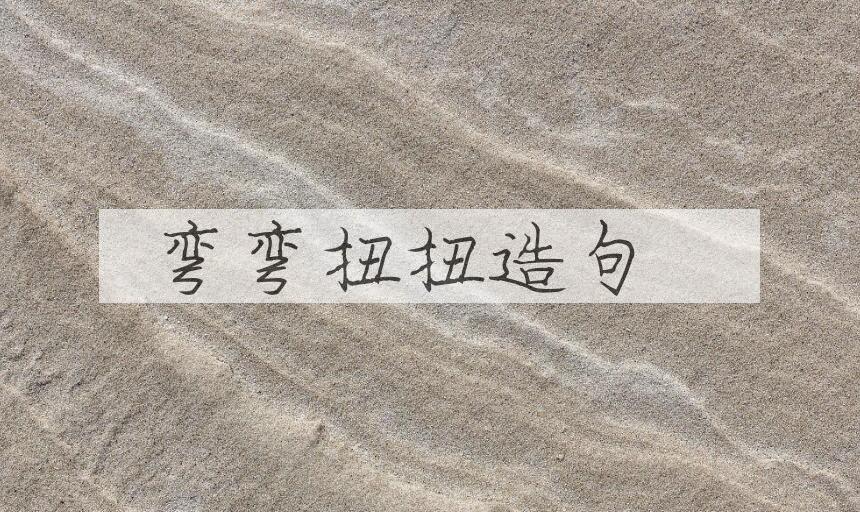 弯弯扭扭造句